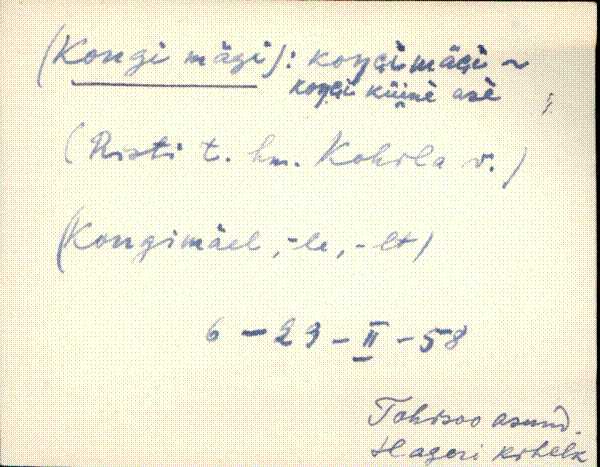 (Kongi mägi): koŋɢi mäɢi ~
koŋɢi küinè asè
(Risti t. hm. Kohila v.)
(Kongimäel, -le, -lt)
6 - 29 - II - 58
Tohisoo asund.
Hageri kihelk